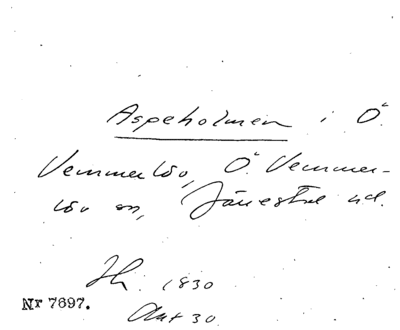 Aspeholmen i Ö.
Vemmerlöv, Ö. Vemmer-
löv sn, Järrestad hd.
1830
Nr 7697.
Akt 30